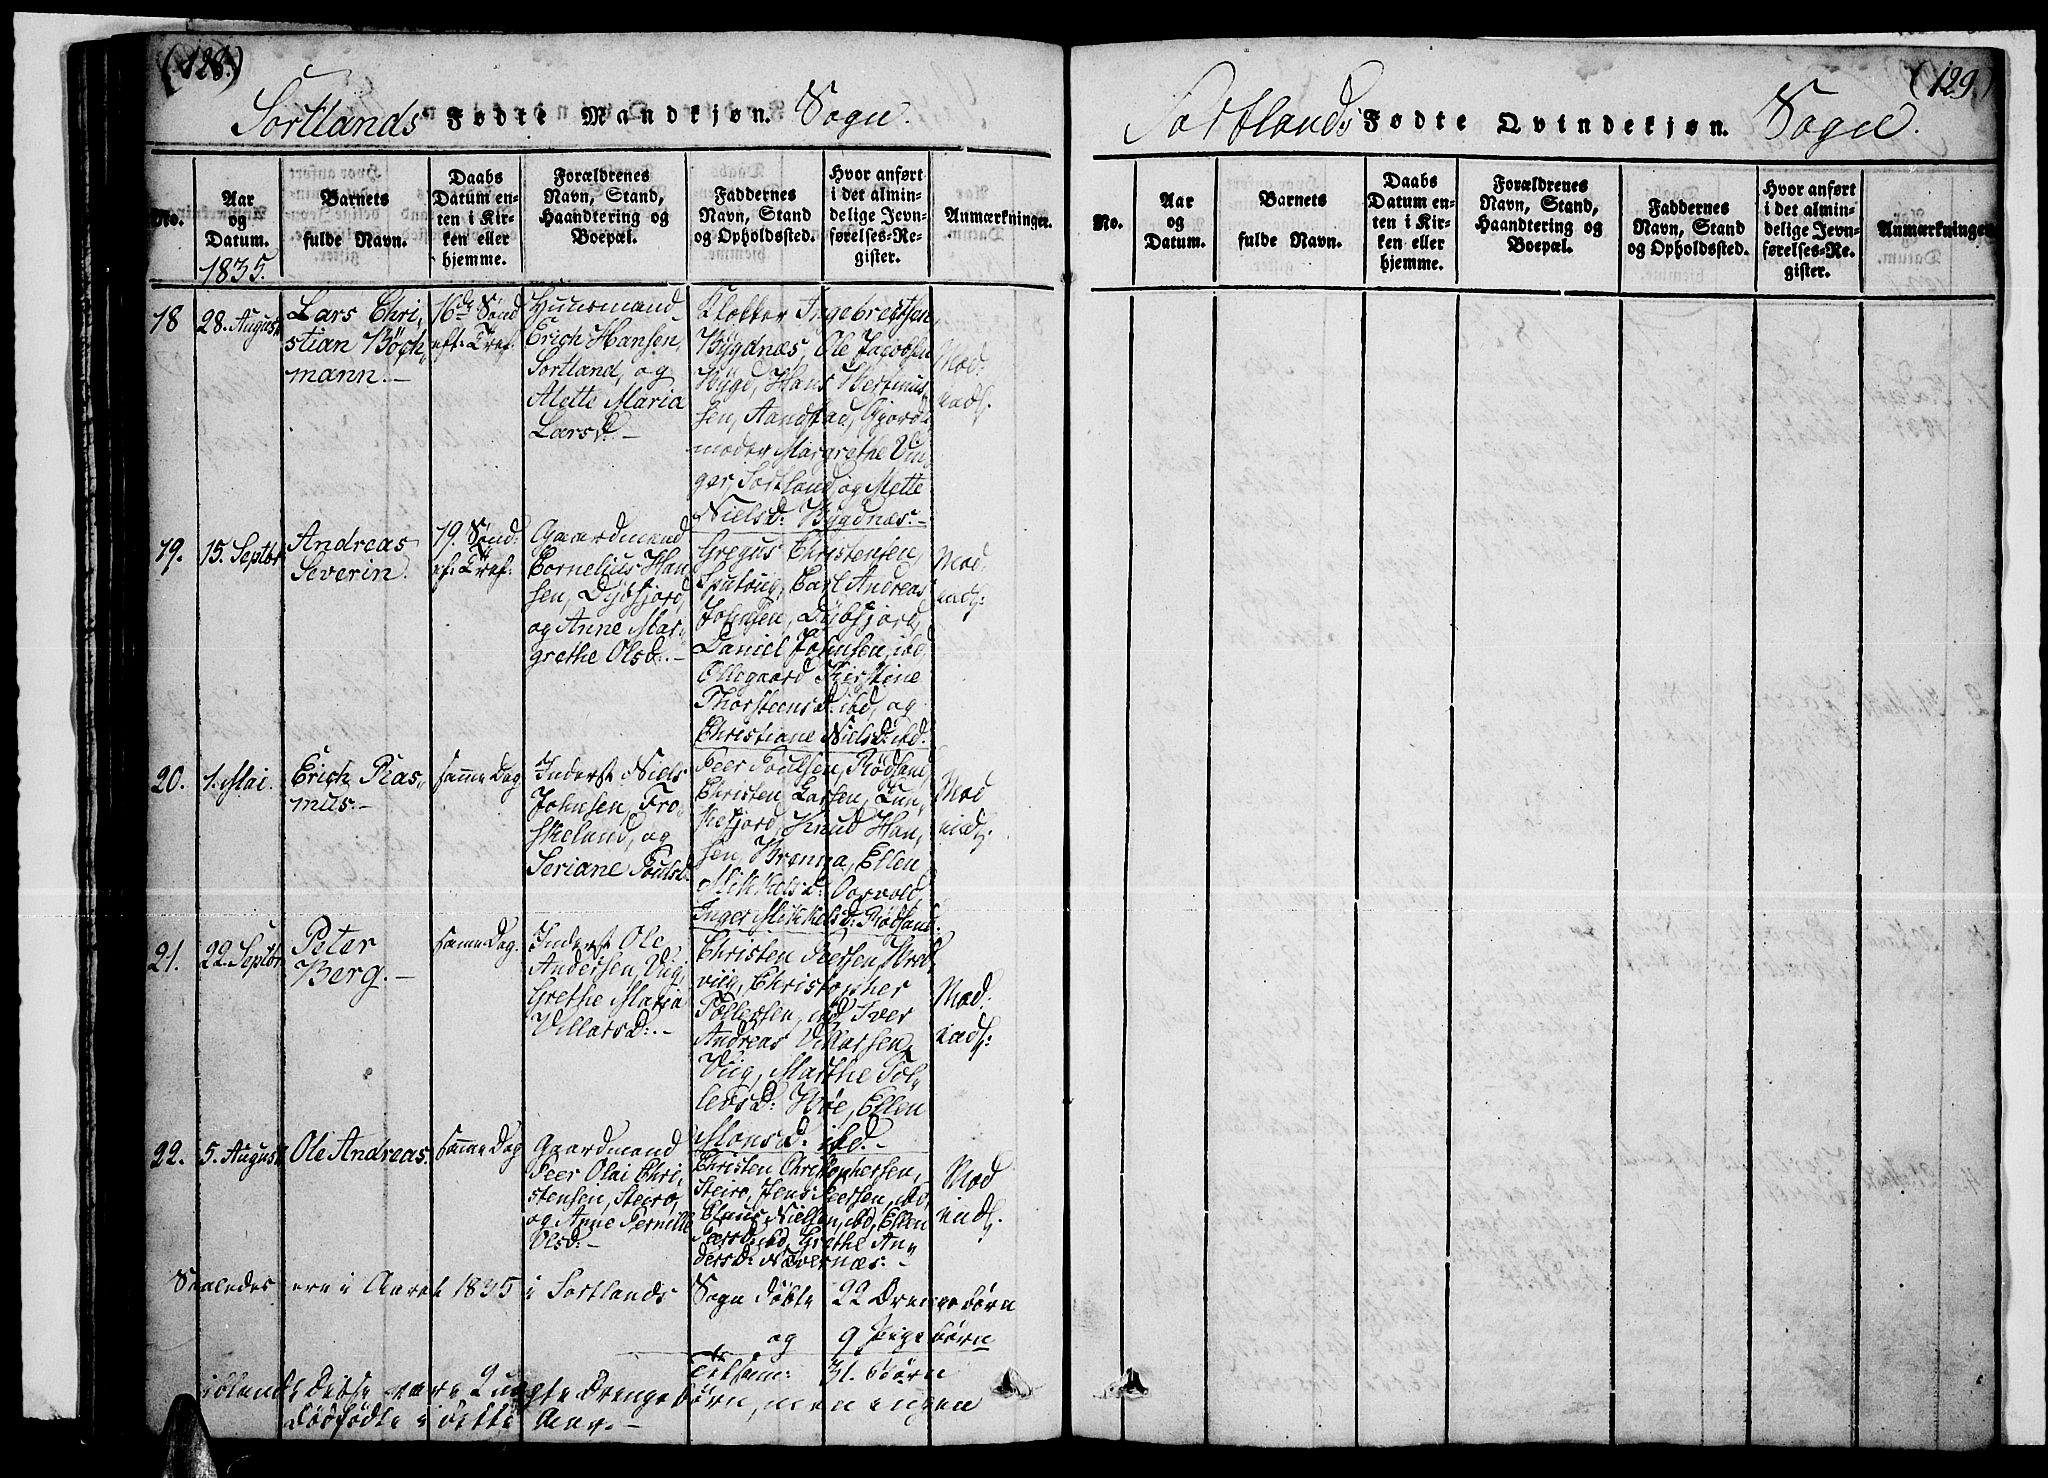 (128.)
Sortlands Fødte Mandkjøn. Sogn.
No.
Aar
og
Datum.
1835.
Barnets
fulde Navn.
Daabs
Datum en-
ten i Kir-
ken eller
hjemme.
Forældrenes
Navn, Stand,
Haandtering og
Boepæl.
Faddernes
Navn, Stand
og Opholdssted.
Hvor anført
i det almin-
delige Jevn-
førelses-Re-
gister.
Anmærkninger.
18
28. August
Lars Chri-
stian Böch-
mann.-
16de Sönd
eft: Tref:
Huusmand
Erich Hansen,
Sortland, og
Alette Maria
Larsd:-
Klokker Ingebretsen,
Bygdnæs, Ole Jacobsen
Bygd, Hans Bertheus-
sen, Aandstad, Gjord-
moder Margrethe Un-
ger, Sortland og Mette
Nielsd: Bygdnæs:-
Mod:
vads.
19.
15. Septbr
Andreas
Severin.
19. Sönd:
ef: Tref:
Gaardmand
Cornelius Han-
sen, Dybfjord,
og Anne Mar-
grethe Olsd:-
Gregus Christensen,
Carl Andreas
Johnsen, Dybfjord,
Daniel Johnsen, ibd
Ollegaard Kirstine
Thorsteensd: ibd, og
Christiane Nielsd: ibd.
Mod:
vads:
20.
1. Mai.
Erich Ras-
mus.-
samme Dag
Inderst Niels
Johnsen, Fro-
skeland, og
Seriane Poulsd.
Peer Poulsen, Rödsand,
Christen Larsen, Lun-
kefjord, Knud Han-
sen, Ellen
Mikkelsd:
Inger Mikkelsd: Rödsand:
Mod
vads:
21.
22. Septbr
Peter
Berg.-
samme Dag.
Inderst Ole
Andersen, Vig,
Grethe Maria
Villarsd:-
Christen Peersen,
Christopher
Tollefsen, ibd Iver
Andreas Villassen,
Vig, Marthe Tol-
lefsd: Ellen
Monsd: ibd.-
Mod:
vads:
22.
5. August
Ole Andreas.
samme Dag
Gaardmand
Peer Olai Chri-
stensen, Steiro,
og Anne Pernille
Olsd:-
Christen Christophersen,
Steiro, Jens Peersen, ibd,
Claus Nielsen, ibd, Ellen
Peersd: ibd, Grethe An-
dersd:
Mod
vads.
Saaledes ere i Aaret 1835 i Sortlands Sogn döbte 22 Drengebörn
og 9 Pigebörn
Tilsam: 31. Börn
iblandt disse vare 2 uægte Drengebörn, men ingen
dödfödte i dette Aar.-
(129.)
Sortlands Fødte Qvindekjøn. Sogn.
No.
Aar
og
Datum.
Barnets
fulde Navn.
Daabs
Datum en-
ten i Kir-
ken eller
hjemme.
Forældrenes
Navn, Stand,
Haandtering og
Boepæl.
Faddernes
Navn, Stand
og Opholdssted.
Hvor anført
i det almin-
delige Jevn-
førelses-Re-
gister.
Anmærkninger